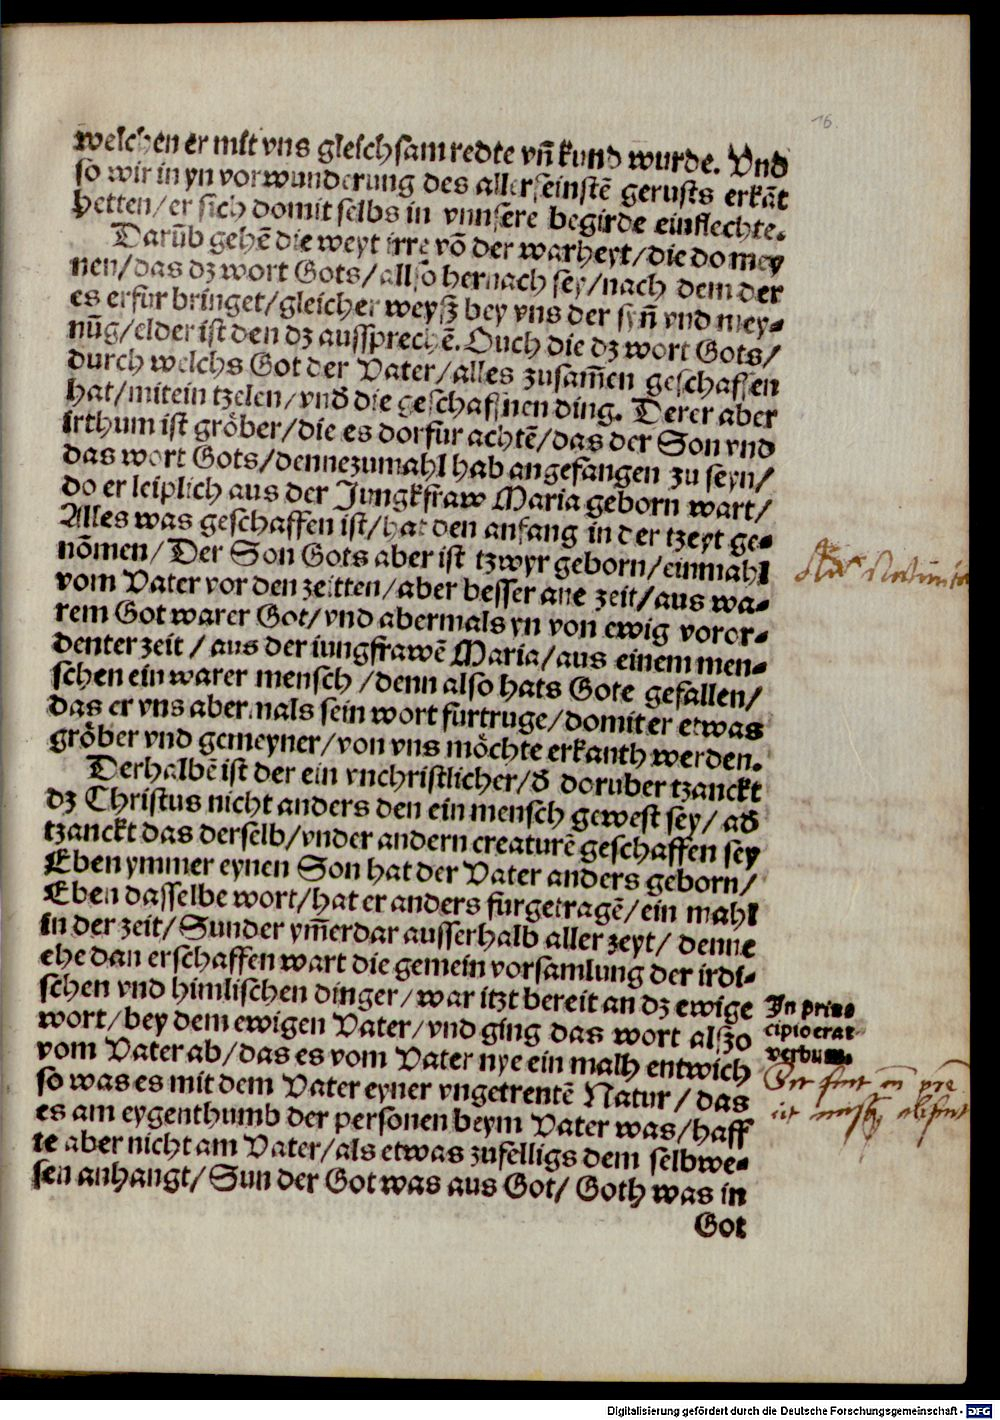 16.
welchen er mit vns gleichsam redte vñ kund wurde. Vnd
so wir in yn vorwunderung des allerfeinstē gerusts erkāt
hetten/er sich domit selbs in vnnsere begirde einflechte.
Darūb gehē die weyt irre vō der warheyt/die do mey
nen/das dz wort Gots/allso hernach sey/nach dem der
es erfur bringet/gleicher weyß bey vns der syn̄ vnd mey-
nūg/elder ist den dz aussprechē. Ouch die dz wort Gots/
durch welchs Got der Vater/alles zusam̄en geschaffen
hat/mitein tzelen/vnd̄ die geschaffnen ding. Derer aber
irthum ist grȯber/die es dorfur achtē/das der Son vnd
das wort Gots/dennezumahl hab angefangen zu seyn/
do er leiplich aus der Jungkfraw Maria geborn wart/
Alles was geschaffen ist/hat den anfang in der tzeyt ge-
nōmen/Der Son Gots aber ist tzwyr geborn/einmahl
vom Vater vor den zeitten/aber besser ane zeit/aus wa-
rem Got warer Got/vnd abermals yn von ewig voror-
denter zeit/aus der iungfrawē Maria/aus einem men-
schen ein warer mensch/denn also hats Gote gefallen/
das er vns abermals sein wort furtruge/domit er etwas
grȯber vnd gemeyner/von vns mȯchte erkanth werden.
Derhalbē ist der ein vnchristlicher/d̄ doruber tzanckt
dz Christus nicht anders den ein mensch gewest sey/ad̄
tzanckt das derselb/vnder andern creaturē geschaffen sey
Eben ymmer eynen Son hat der Vater anders geborn/
Eben dasselbe wort/hat er anders furgetragē/ein mahl
in der zeit/Sunder ym̄erdar ausserhalb aller zeyt/denne
ehe dan erschaffen wart die gemein vorsamlung der irdi-
schen vnd himlischen dinger/war itzt bereit an dz ewige
wort/bey dem ewigen Vater/vnd ging das wort alßo
vom Vater ab/das es vom Vater nye ein malh entwich
so was es mit dem Vater eyner vngetrentē Natur/das
es am eygenthumb der personen beym Vater was/haff
te aber nicht am Vater/als etwas zufelligs dem selbwe-
sen anhangt/Sun der Got was aus Got/Goth was in
Got
In prin-
cipio erat
verbum.
Digitalisierung gefördert durch die Deutsche Forschungsgemeinschaft - DFG